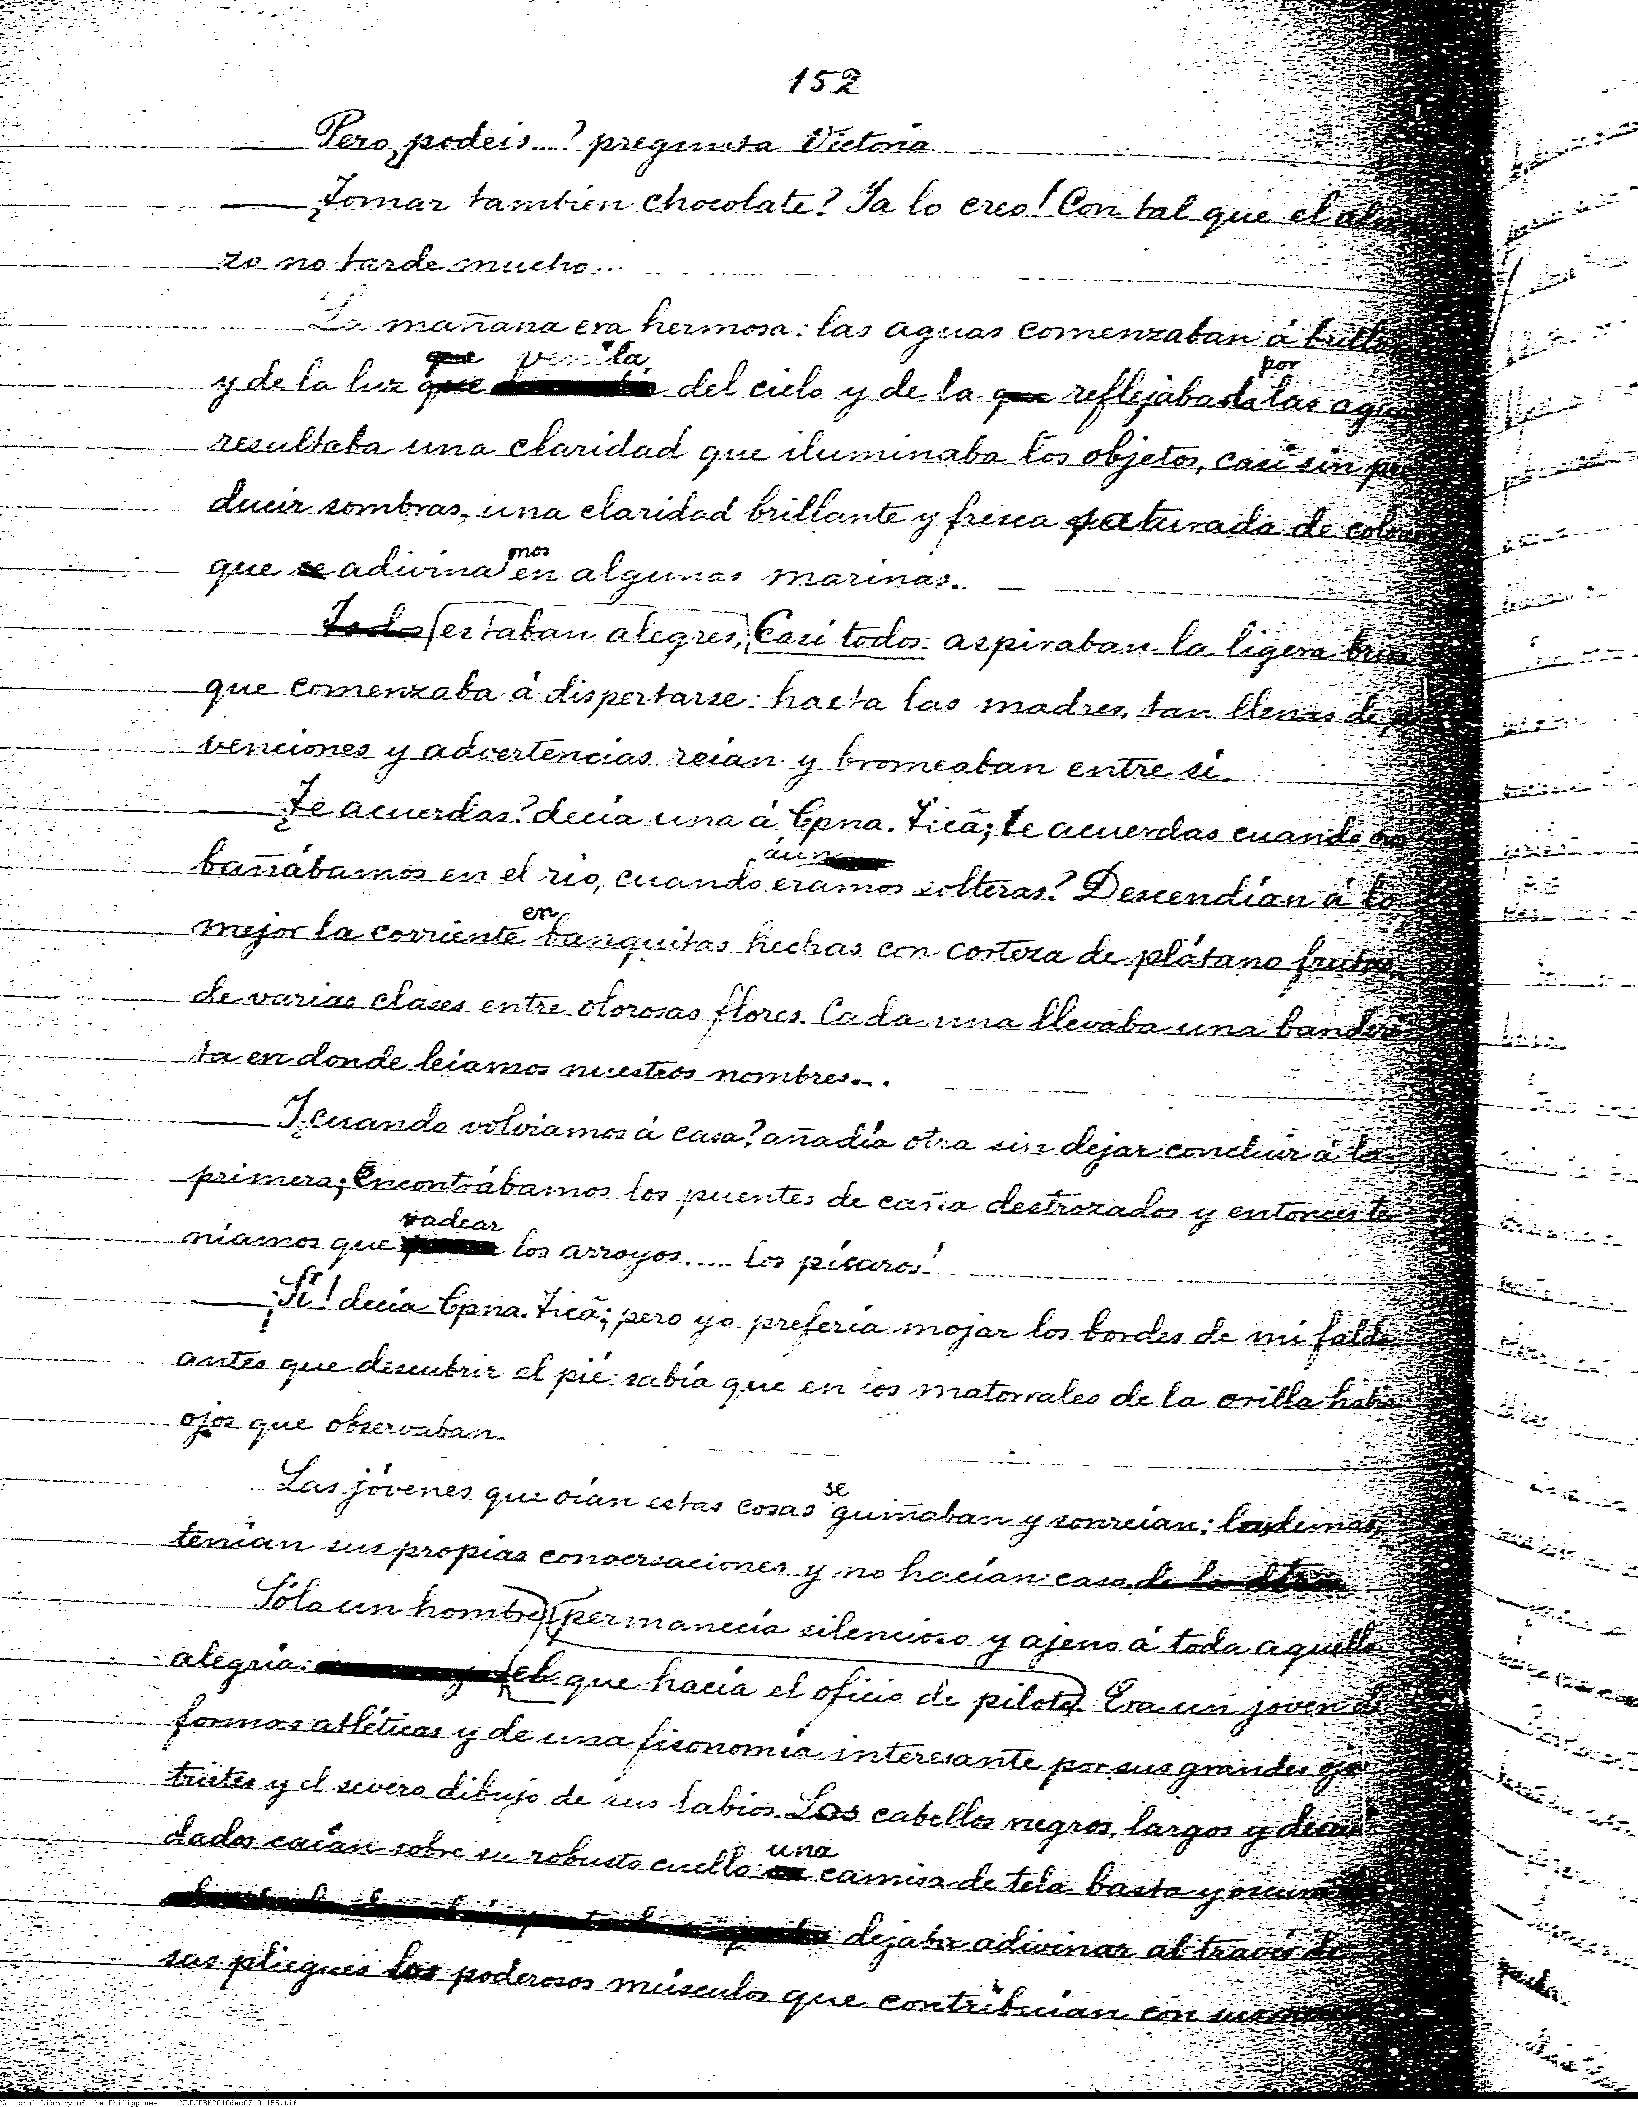 152
— Pero, podeis...? pregunta Victoria
— ¿Tomar tambien chocolate? Ya lo creo! Con tal que el
zo no tarde mucho...
La mañana era hermosa: las aguas comenzaban á
y de la luz que venía del cielo y de la reflejada por las
resultaba una claridad que iluminaba los objetos, casi sin
ducir sombras, una claridad brillante y fresca saturada de
que adivinamos en algunas marinas.
Todos estaban alegres, Casi todos aspiraban la ligera
que comenzaba á dispertarse: hasta las madres, tan llenas de
venciones y advertencias reian y bromeaban entre si.
— ¿Te acuerdas? decía una á Cpna. Ticã; ¿te acuerdas cuando
bañábamos en el río, cuando áun eramos solteras? Descendían á lo
mejor la corriente en banquitas hechas con corteza de plátano frutas
de varias clases entre olorosas flores. Cada una llevaba una bandera
ta en donde leiamos nuestros nombres...
— ¿Y cuando volviamos á casa? añadía otra sin dejar concluir á la
primera; Encontrábamos los puentes de caña destrozados y entonces te
níamos que vadear los arroyos..... los pícaros!
— ¡Sí! decía Cpna. Ticã; pero yo prefería mojar los bordes de mi falda
antes que descubrir el pié: sabía que en los matorrales de la orilla
ojos que observaban.
Las jóvenes que oían estas cosas se guiñaban y sonreían: las demas,
tenían sus propias conversaciones y no hacían caso
Sólo un hombre permanecía silencioso y ajeno á toda aquella
alegría: el que hacía el oficio de piloto. Era un joven
formas atléticas y de una fisonomía interesante por sus grandes
tristes y el severo dibujo de sus labios. Los cabellos negros, largos y
dados caían sobre su robusto cuello: una camisa de tela basta y
dejaba adivinar al traves de
sus pliegues los poderosos músculos que contribuían con